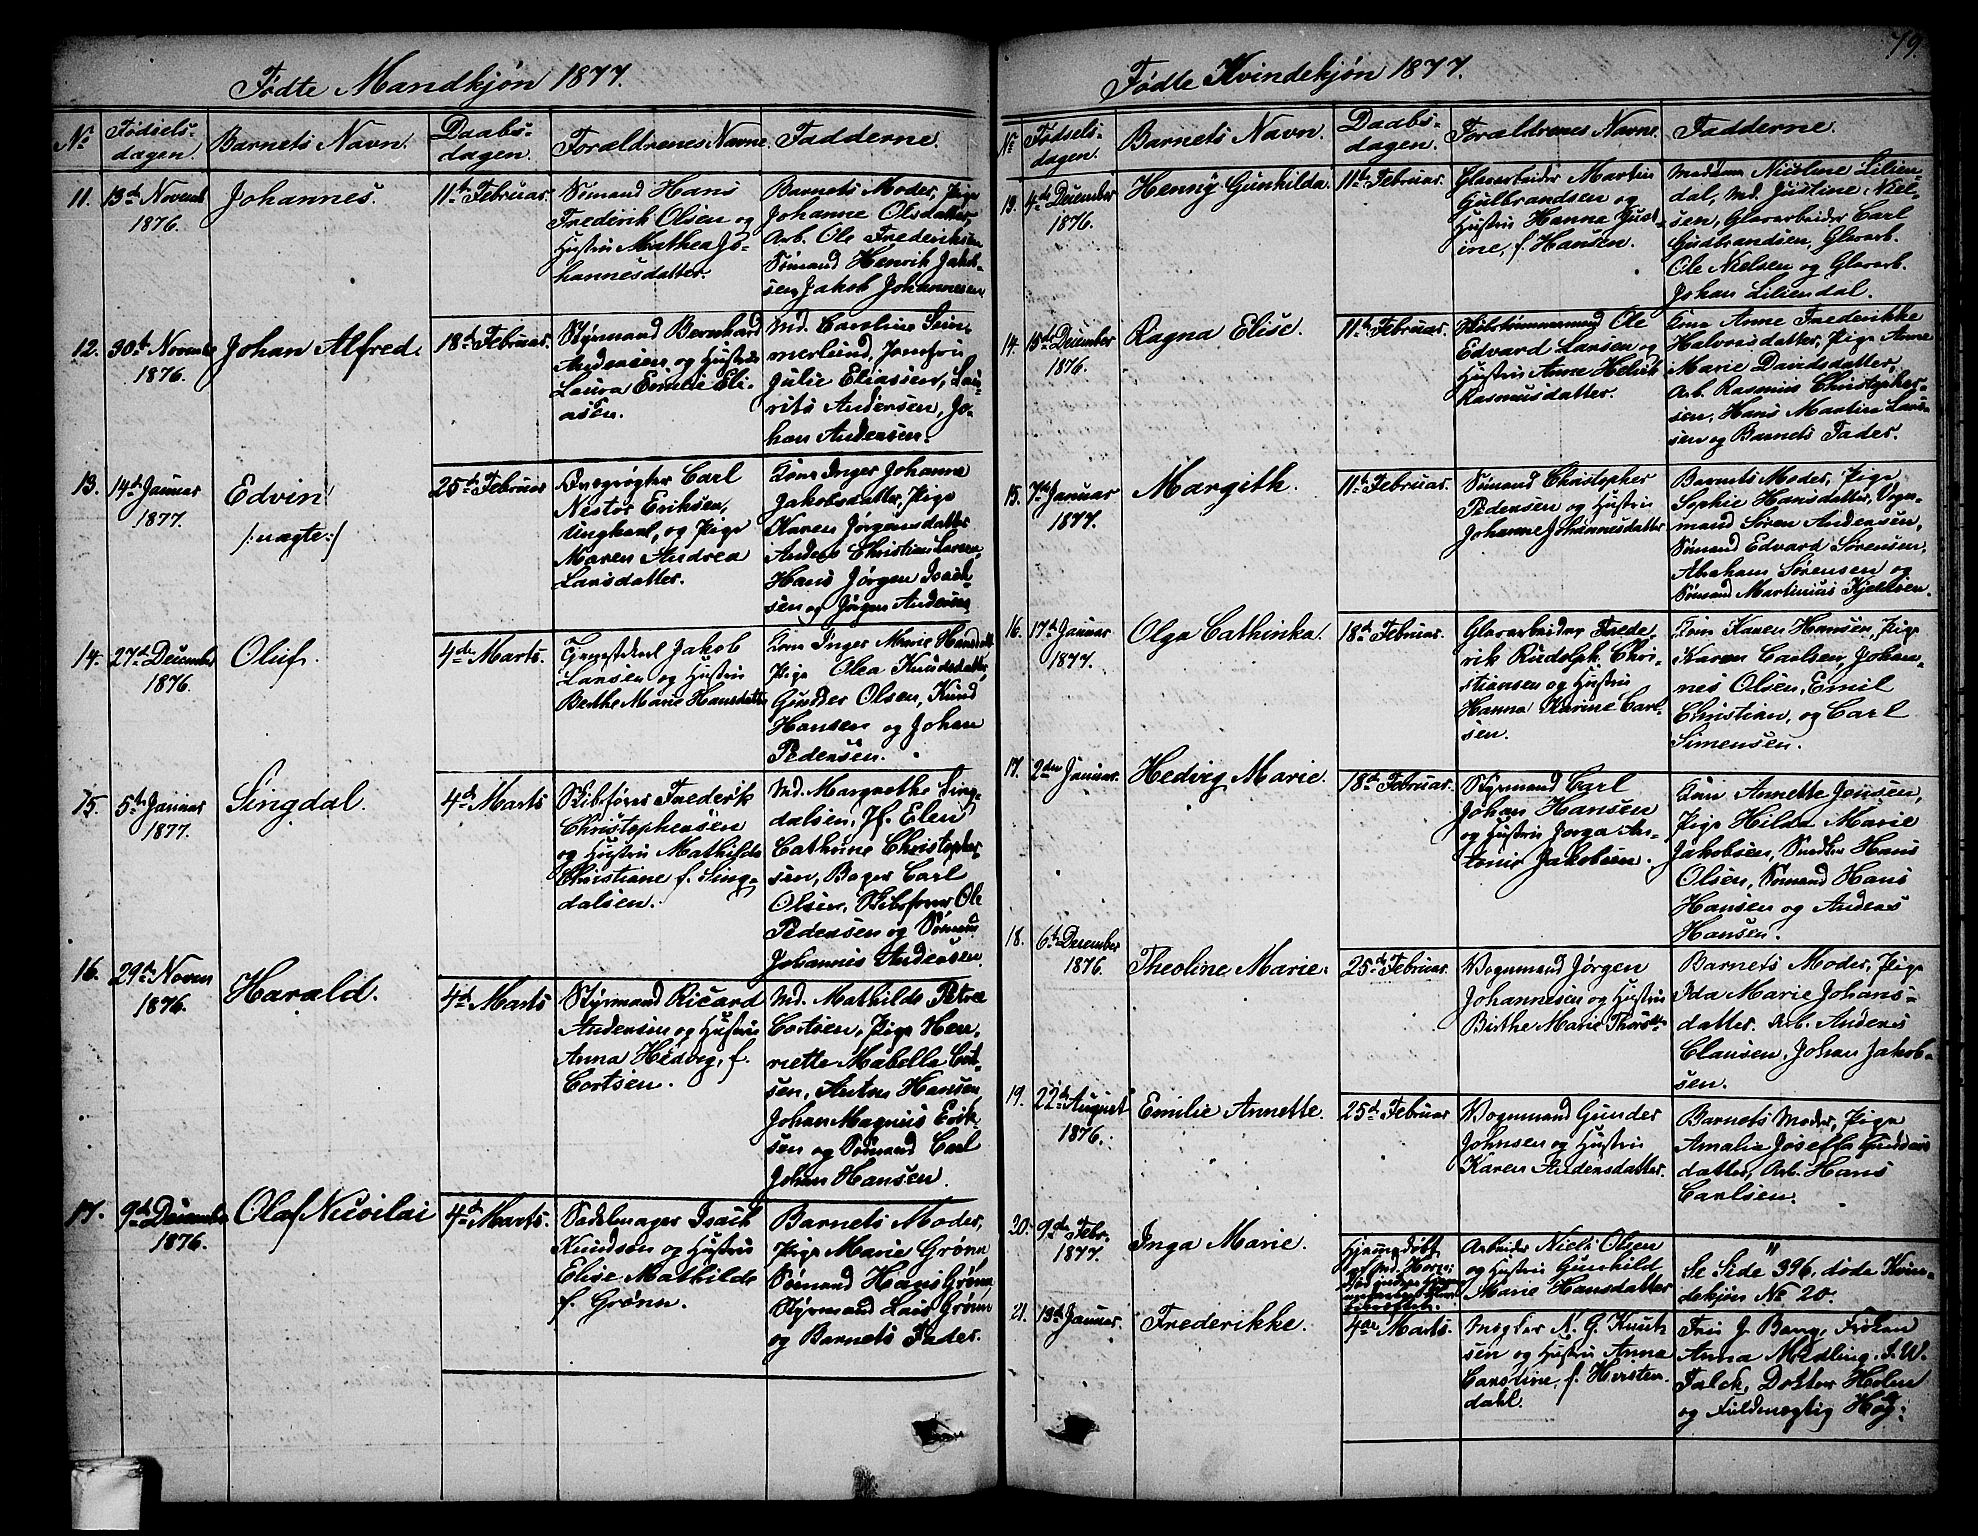 79.
Fødte Mandkjøn 1877.
No
Fødsels-
dagen.
Barnets Navn.
Daabs-
dagen.
Forældrenes Navne.
Fadderne.
11.
13de Novemb
1876.
Johannes.
11te Februar.
Sømand Hans
Frederik Olsen og
Hustru Mathea Jo-
hannesdatter.
Barnets Moder, Pige
Johanne Olsdatter,
Arb. Ole Frederiksen
Sømand Henrik Jakob-
sen, Jakob Johannesen
12.
30te Novemb
1876.
Johan Alfred.
18de Februar.
Styrmand Bernhard
Andersen og Hustru
Laura Emilie Eli-
asen.
Md. Caroline
Jomfru
Julie Eliassen, Lau-
rits Andersen, Jo-
han Andersen.
13.
14de Januar
1877.
Edvin
/:uægte:/
25de Februar
Carl
Nestor Eriksen,
Ungkarl, og Pige
Maren Andrea
Larsdatter.
Kone Inger Johanne
Jakobsdatter, Pige
Karen Jørgensdatter
Anders Christian Larsen,
Hans Jørgen Isak-
sen og Jørgen Andersen
14.
27de December
1876.
Oluf.
4de Marts.
Jakob
Larsen og Hustru
Berthe Marie Hansdatter
Kone Inger Marie Hansdatt
Pige Olea Knudsdatter,
Gunder Olsen, Knud
Hansen og Johan
Pedersen.
15.
5te Januar
1877.
Singdal.
4de Marts
Skibsfører Frederik
Christophersen
og Hustru Mathilde
Christiane f. Sing-
dalsen.
Md. Margrethe Sing-
dalsen, Jf. Elen
Cathrine Christopher-
sen, Bager Carl
Olsen, Skibsfører Ole
Pedersen og Sømand
Johannes Andersen.
16.
29de Novem
1876.
Harald.
4de Marts
Styrmand Ricard
Andersen og Hustru
Anna Hedvig, f.
Cortsen.
Md. Mathilde Petrea
Cortsen, Pige Hen-
riette Mabella Cort-
sen, Anton Hansen
Johan Magnus Erik-
sen og Sømand Carl
Johan Hansen.
17.
9de December
1876.
Olaf Nicolai
4de Marts.
Sadelmager Isack
Knudsen og Hustru
Elise Mathilde
f. Grønn.
Barnets Moder,
Pige Marie Grønn
Sømand Hans Grønn
Styrmand Lars Grønn
og Barnets Fader.
Fødte Kvindekjøn 1877.
No
Fødsels-
dagen.
Barnets Navn.
Daabs-
dagen.
Forældrenes Navne.
Fadderne.
13.
4de December
1876.
Henny Gunhilda.
11te Februar.
Glasarbeider Martin
Gulbrandsen og
Hustru Hanna Just-
ine, f. Hansen.
Madam Nicoline Lilien-
dal, Md. Justine Niel-
sen, Glasarbeider Carl
Gudbrandsen, Glasarb.
Ole Nielsen og Glasarb.
Johan Liliendal.
14.
15de December
1876.
Ragna Elise.
11te Februar.
Skibstømmermand Ole
Edvard Larsen og
Hustru Anne Helene
Rasmusdatter.
Kone Anne Frederikke
Halvorsdatter, Pige Anne
Marie Davidsdatter,
Arb. Rasmus Christopher-
sen, Hans Martin Lars-
sen og Barnets Fader.
15.
7de Januar
1877.
Margith.
11te Februar.
Sømand Christopher
Pedersen og Hustru
Johanne Johannesdatter
Barnets Moder, Pige
Sophie Hansdatter, Vogn-
mand Søren Andersen,
Sømand Edvard Sørensen,
Abraham Sørensen og
Sømand Martinius Kjeldsen.
16.
17de Januar
1877.
Olga Cathinka.
18de Februar.
Glasarbeider Frede-
rik Rudolph Chri-
stiansen og Hustru
Hanna Karine Carl-
sen.
Kone Karen Hansen, Pige
Karen Carlsen, Johan-
nes Olsen, Emil
Christian, og Carl
Simensen.
17.
2den Januar.
Hedvig Marie.
18de Februar.
Styrmand Carl
Johan Hansen
og Hustru Jorga An-
tonie Jakobsen.
Kone Annette Jensen,
Pige Hilda Marie
Jakobsen, Snedker Hans
Olsen, Sømand Hans
Hansen og Anders
Hansen.
18.
6te December
1876.
Theoline Marie.
25de Februar.
Vognmand Jørgen
Johannesen og Hustru
Birthe Marie Thorsdtr
Barnets Moder, Pige
Ida Marie Johans-
datter. Arb. Anders
Clausen, Johan Jakob-
sen.
19.
22de August
1876.
Emilie Annette.
25de Februar
Vognmand Gunder
Johnsen og Hustru
Karen Andersdatter.
Barnets Moder, Pige
Amalie Josefa Gunders
datter, Arb. Hans
Carlsen.
20.
9de Febr.
1877.
Inga Marie.
Hjemmedøbt
af Md.
Arbeider Niels Olsen
og Hustru Gunhild
Marie Hansdatter
"
Se Side 396, døde Kvin-
dekjøn No 20.
21.
13de Januar.
Frederikke.
4de Marts.
Mægler N. G. Knut-
sen og Hustru Anna
Caroline, f. Hersten-
dahl.
Fru J. Bang, Frøken
Anna Medling, I. W.
Falck, Doktor Holm
og Fuldmægtig Høg.